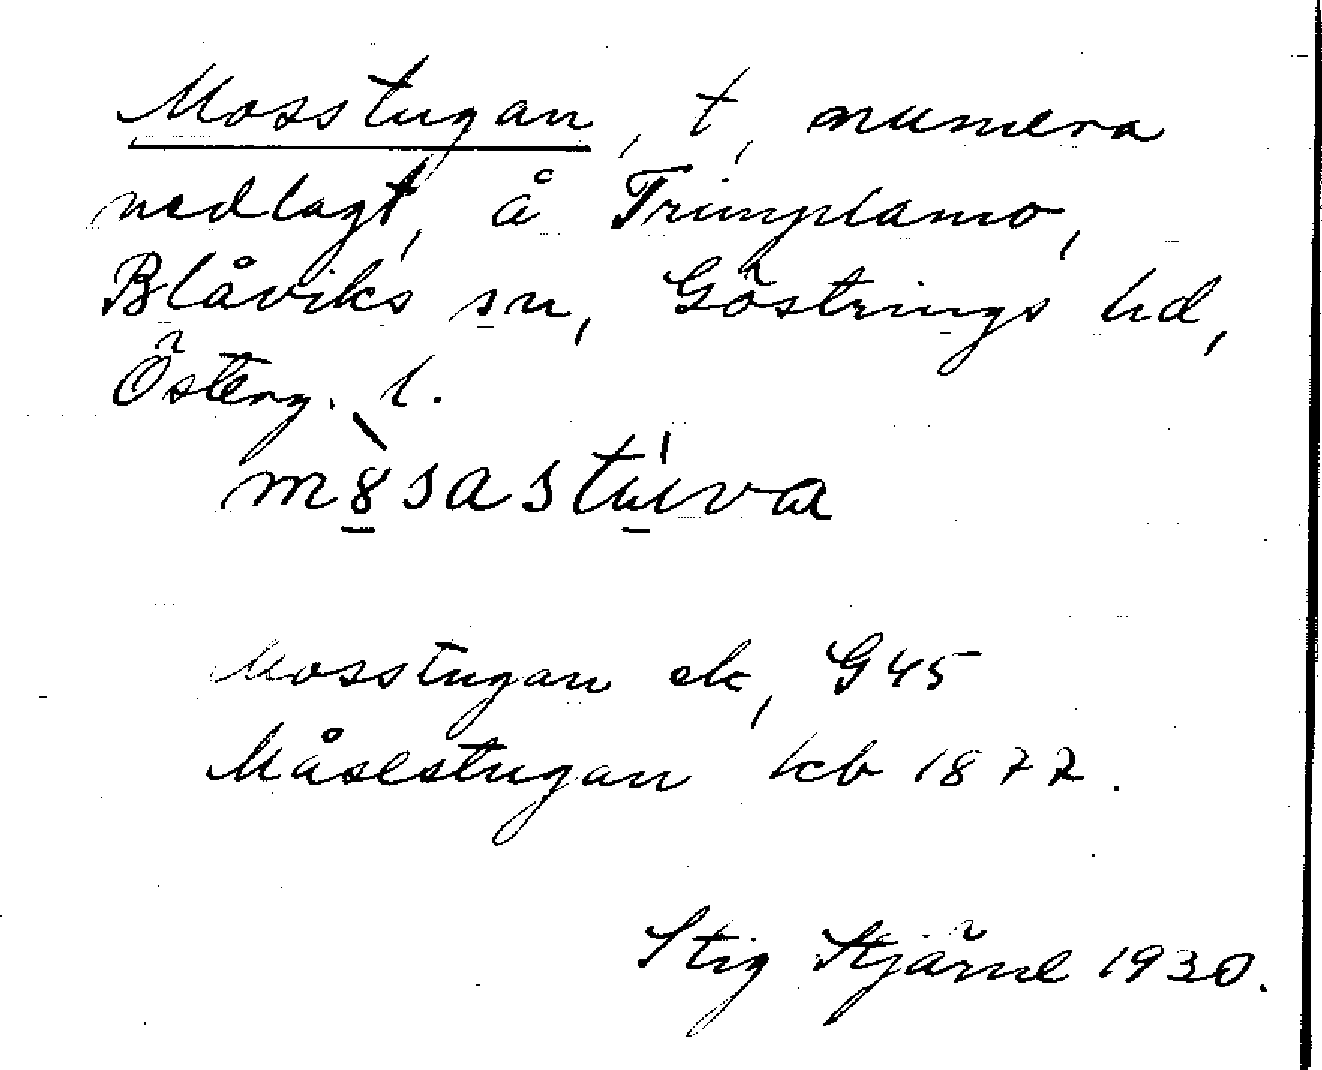 Mosstugan, t, numera
nedlagt, å Trimplamo,
Blåviks sn, Göstrings hd,
Österg. l.
m8sastuva
Mosstugan ek, G45
Måsestugan kb 1877.
Stig Stjärne 1930.